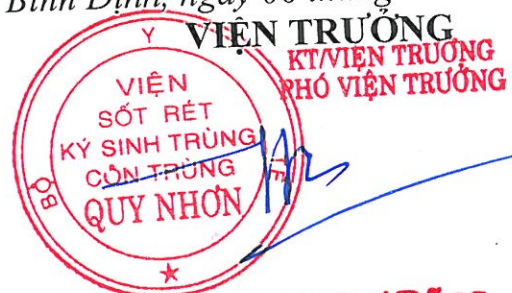 Bình Định, ngày
VIỆN TRƯỞNG
KT/VIỆN TRƯỞNG
PHÓ VIỆN TRƯỞNG
BỘ Y TẾ
VIỆN
SỐT RÉT
KÝ SINH TRÙNG
CÔN TRÙNG
QUY NHƠN